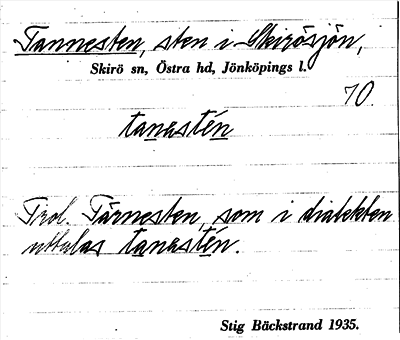 Tannesten, sten i Skirösjön,
Skirö sn, Östra hd, Jönköpings l.
70.
tanastén
Trol. Tärnesten, som i dialekten
uttalas tanastén.
Stig Bäckstrand 1935.